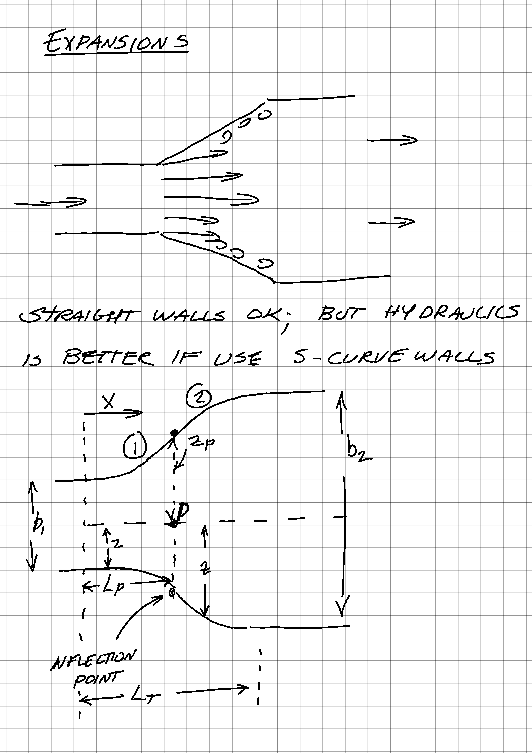 EXPANSIONS
STRAIGHT WALLS OK; BUT HYDRAULICS
IS BETTER IF USE S-CURVE WALLS
X
②
①
Zp
b2
b1
P
z
z
Lp
INFLECTION
POINT
LT